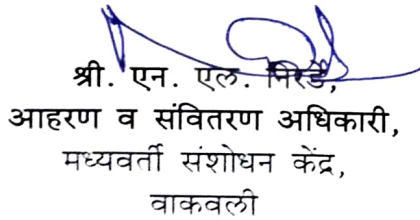 श्री. एन. एल. मिरर्डे,
आहरण व संवितरण अधिकारी,
मध्यवर्ती संशोधन केंद्र,
वाकवली